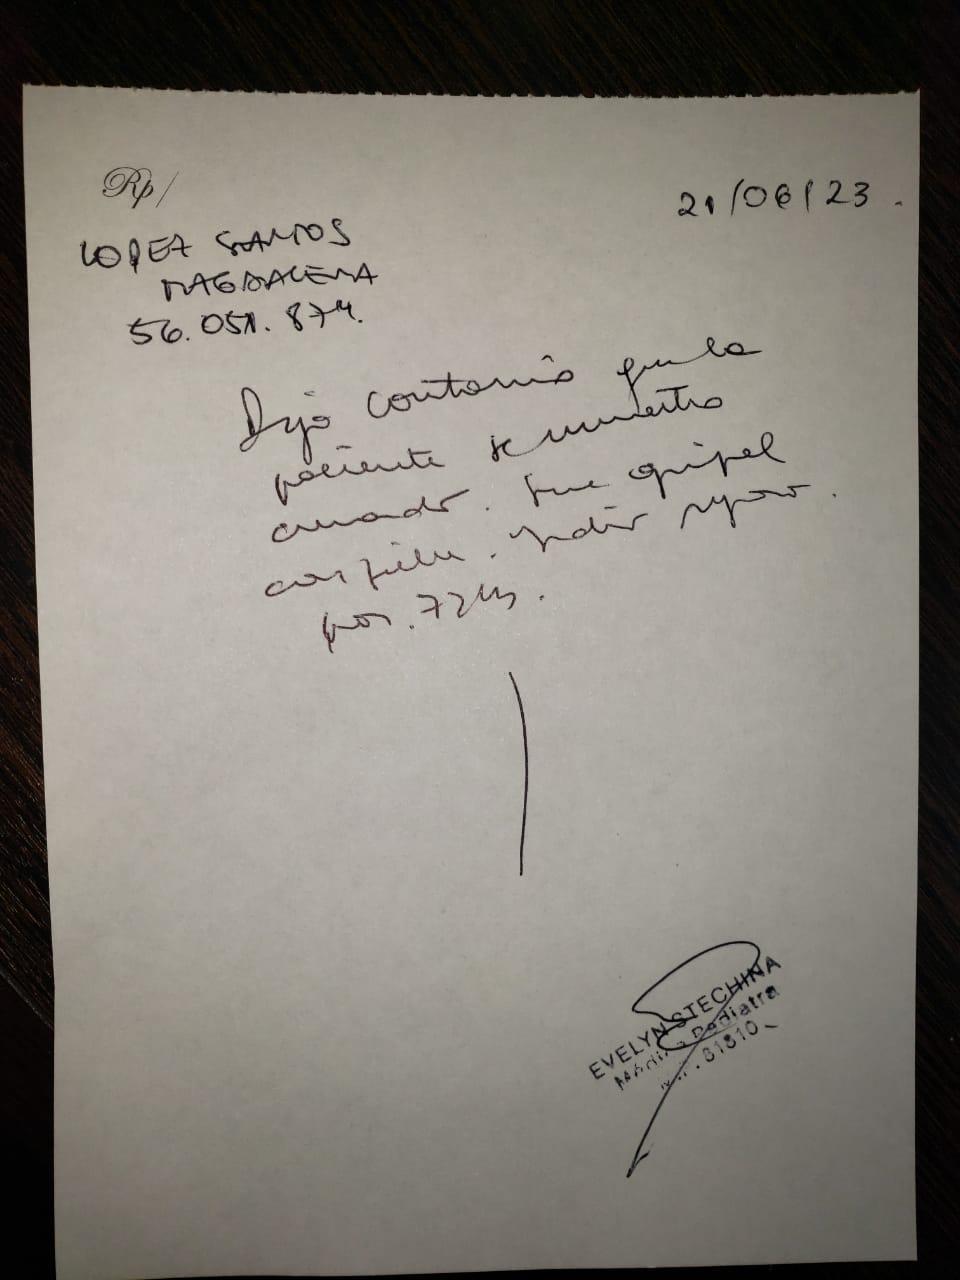 Rp/
21/06/23.
LOPEZ SANTOS
MAGDALENA
56.051.874.
Dejo constancia que la
paciente se muestra
cursando
con fiebre. Indico reposo.
por 72hs.
EVELYN STECHINA
Médica Pediatra
81810